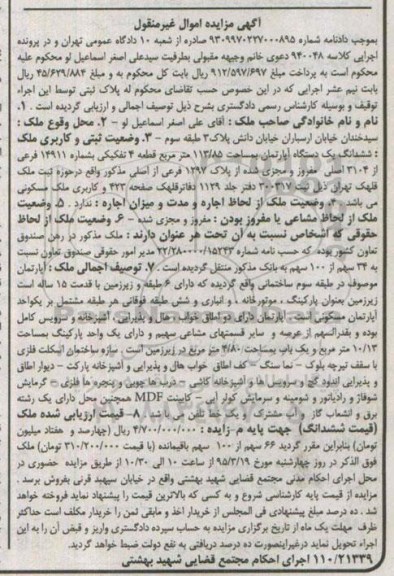 آگهی مزایده اموال غیرمنقول
بموجب دادنامه شماره ۹۳۰۹۹۷۰۲۲۷۰۰۰۸۹۵ صادره از شعبه ۱۰ دادگاه عمومی تهران و در پرونده
اجرایی کلاسه ۹۴۰۰۴۸ دعوی خانم وجیهه مقبولی بطرفیت سیدعلی اصغر اسماعیل لو محکوم علیه
محکوم است به پرداخت مبلغ ۹۱۲/۵۹۷/۶۹۷ ریال بابت کل محکوم به و مبلغ ۴۵/۶۲۹/۸۸۴ ریال
بابت نیم عشر اجرایی که در این خصوص حسب تقاضای محکوم له پلاک ثبتی توسط این اجراء
توقیف و بوسیله کارشناس رسمی دادگستری بشرح ذیل توصیف اجمالی و ارزیابی گردیده است . ۱-
نام و نام خانوادگی صاحب ملک : آقای علی اصغر اسماعیل لو – ۲- محل وقوع ملک :
سیدخندان خیابان ارسباران خیابان دانش پلاک۳ طبقه سوم – ۳- وضعیت ثبتی و کاربری ملک
: ششدانگ یک دستگاه آپارتمان بمساحت ۱۱۳/۸۵ متر مربع قطعه ۴ تفکیکی بشماره ۱۴۹۱۱ فرعی
از ۳۱۰۴ اصلی مفروز و مجزی شده از پلاک ۱۲۹۷ فرعی از اصلی مذکور واقع درحوزه ثبت ملک
قلهک تهران ذیل ثبت ۳۰۰۳۱۷ دفتر جلد ۱۱۲۹ دفاترقلهک صفحه ۴۲۳ و کاربری ملک مسکونی
می باشد – ۴- وضعیت ملک از لحاظ اجاره و مدت و میزان اجاره : ندارد . ۵- وضعیت
ملک از لحاظ مشاعی یا مفروز بودن : مفروز و مجزی شده – ۶- وضعیت ملک از لحاظ
حقوقی که اشخاص نسبت به آن تحت هر عنوان دارند : ملک مذکور در رهن صندوق
تعاون کشور بوده که حسب نامه شماره ۲۲/۲۸۰۰۰/۱۵۲۴۳ مدیر امور حقوقی صندوق تعاون نسبت
به ۳۴ سهم از ۱۰۰ سهم به بانک مذکور منتقل گردیده است . ۷- توصیف اجمالی ملک : آپارتمان
موصوف در طبقه سوم ساختمانی واقع گردیده که دارای ۶ طبقه و زیرزمین با قدمت ۱۵ ساله است
زیرزمین بعنوان پارکینگ ، موتورخانه ، و انباری و شش طبقه فوقانی هر طبقه مشتمل بر یکواحد
آپارتمان مسکونی است – آپارتمان دارای دو اطاق خواب و هال و پذیرایی ، آشپزخانه و سرویس کامل
بوده و بقدرالسهم از عرصه و سایر قسمتهای مشاعی سهیم و دارای یک واحد پارکینگ بمساحت
۱۰/۱۳ متر مربع و یک باب بمساحت ۴/۸۰ متر مربع در زیرزمین است . سازه ساختمان اسکلت فلزی
با سقف تیرچه بلوک – نما سنگ – کف اطاق خواب هال و پذیرایی و آشپزخانه پارکت – دیوار اطاق
و پذیرایی اندود گچ و سرویس ها و آشپزخانه کاشی – درب ها چوبی و پنجره ها فلزی – گرمایش
شوفاژ و رادیاتور و شومینه و سرمایش کولر آبی – کابینت MDF همچنین محل دارای یک رشته
برق و انشعاب گاز و آب مشترک و یک خط تلفن می باشد . ۸- قیمت ارزیابی شده ملک
(قیمت ششدانگ) جهت پایه م زایده : ۴/۷۰۰/۰۰۰/۰۰۰ ریال (چهارصد و هفتاد میلیون
تومان) بنابراین مقرر گردید ۶۶ سهم از ۱۰۰ سهم باقیمانده (با قیمت ۳۱۰/۲۰۰/۰۰۰ تومان) ملک
فوق الذکر در روز چهارشنبه مورخ ۹۵/۳/۱۹ از ساعت ۱۰ الی ۱۰/۳۰ از طریق مزایده حضوری در
محل اجرای احکام مدنی مجتمع قضایی شهید بهشتی واقع در خیابان سپهبد قرنی بفروش برسد .
مزایده از قیمت پایه کارشناسی شروع و به کسی که بالاترین قیمت را پیشنهاد نماید فروخته خواهد
شد . ده درصد مبلغ پیشنهادی فی المجلس از خریدار اخذ و مابقی ثمن را خریدار مکلف است حداکثر
ظرف مهلت یک ماه از تاریخ برگزاری مزایده به حساب سپرده دادگستری واریز و قبض آن را به این
اجراء تحویل نماید درغیراینصورت ده درصد دریافتی به نفع دولت ضبط خواهد گردید.
۱۱۰/۲۱۳۳۹ اجرای احکام مجتمع قضایی شهید بهشتی